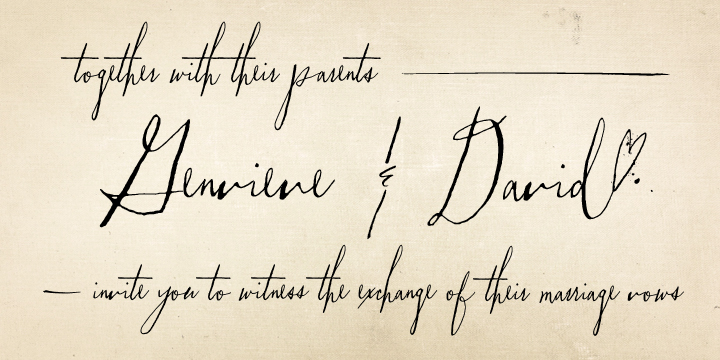 together with their parents
Genvieve & David
— invite you to witness the exchange of their marriage vows